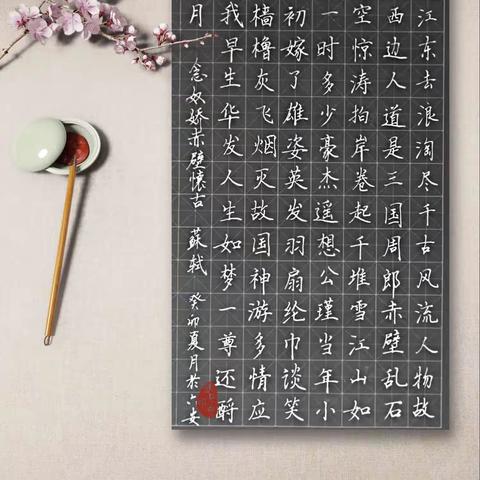 江东去浪淘尽千古风流人物故
西边人道是三国周郎赤壁乱石
空惊涛拍岸卷起千堆雪江山如
一时多少豪杰遥想公瑾当年小
初嫁了雄姿英发羽扇纶巾谈笑
樯橹灰飞烟灭故国神游多情应
我早生华发人生如梦一尊还酹
月 念奴娇赤壁懷古 蘇轼 癸卯夏月於六安